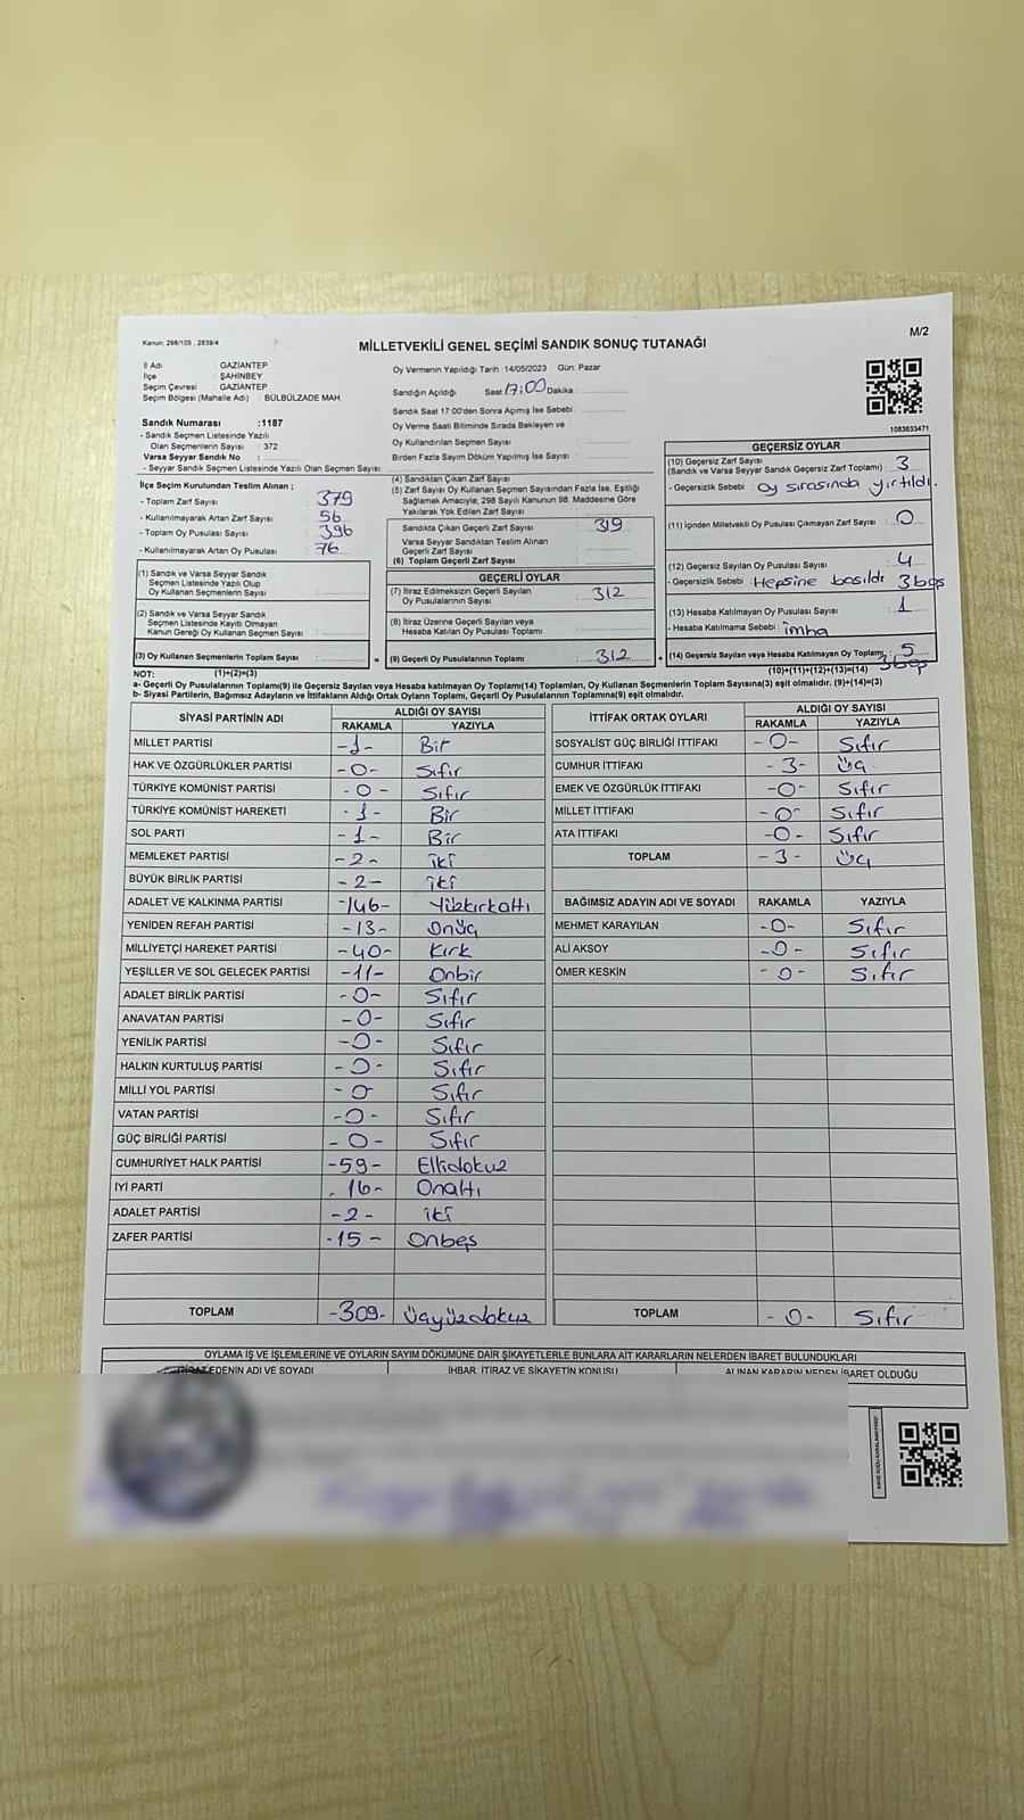 Kanun: 298/105 , 2839/4
M/2
MİLLETVEKİLİ GENEL SEÇİMİ SANDIK SONUÇ TUTANAĞI
İl Adı GAZİANTEP
İlçe ŞAHİNBEY
Seçim Çevresi GAZİANTEP
Seçim Bölgesi (Mahalle Adı) : BÜLBÜLZADE MAH.
Sandık Numarası :1187
- Sandık Seçmen Listesinde Yazılı
Olan Seçmenlerin Sayısı : 372
Varsa Seyyar Sandık No :
- Seyyar Sandık Seçmen Listesinde Yazılı Olan Seçmen Sayısı
İlçe Seçim Kurulundan Teslim Alınan ;
- Toplam Zarf Sayısı 379
- Kullanılmayarak Artan Zarf Sayısı 56
- Toplam Oy Pusulası Sayısı 396
- Kullanılmayarak Artan Oy Pusulası 76
(1) Sandık ve Varsa Seyyar Sandık
Seçmen Listesinde Yazılı Olup
Oy Kullanan Seçmenlerin Sayısı
(2) Sandık ve Varsa Seyyar Sandık
Seçmen Listesinde Kayıtlı Olmayan
Kanun Gereği Oy Kullanan Seçmen Sayısı
(3) Oy Kullanan Seçmenlerin Toplam Sayısı
Oy Vermenin Yapıldığı Tarih :14/05/2023 Gün: Pazar
Sandığın Açıldığı Saat 17:00 Dakika
Sandık Saat 17:00'den Sonra Açımış İse Sebebi
Oy Verme Saati Bitiminde Sırada Bekleyen ve
Oy Kullandırılan Seçmen Sayısı
Birden Fazla Sayım Döküm Yapılmış İse Sayısı
(4) Sandıktan Çıkan Zarf Sayısı
(5) Zarf Sayısı Oy Kullanan Seçmen Sayısından Fazla İse, Eşitliği
Sağlamak Amacıyla, 298 Sayılı Kanunun 98. Maddesine Göre
Yakılarak Yok Edilen Zarf Sayısı
Sandıkta Çıkan Geçerli Zarf Sayısı 319
Varsa Seyyar Sandıktan Teslim Alınan
Geçerli Zarf Sayısı
(6) Toplam Geçerli Zarf Sayısı
GEÇERLİ OYLAR
(7) İtiraz Edilmeksizin Geçerli Sayılan
Oy Pusulalarının Sayısı 312
(8) İtiraz Üzerine Geçerli Sayılan veya
Hesaba Katılan Oy Pusulası Toplamı
= (9) Geçerli Oy Pusulalarının Toplamı 312 +
1083633471
GEÇERSİZ OYLAR
(10) Geçersiz Zarf Sayısı
(Sandık ve Varsa Seyyar Sandık Geçersiz Zarf Toplamı) 3
- Geçersizlik Sebebi : Oy sırasında yırtıldı.
(11) İçinden Milletvekili Oy Pusulası Çıkmayan Zarf Sayısı 0
(12) Geçersiz Sayılan Oy Pusulası Sayısı 4
- Geçersizlik Sebebi : Hepsine basıldı 3 boş
(13) Hesaba Katılmayan Oy Pusulası Sayısı 1
- Hesaba Katılmama Sebebi : imha
(14) Geçersiz Sayılan veya Hesaba Katılmayan Oy Toplamı 5
3 boş
NOT: (1)+(2)=(3) (10)+(11)+(12)+(13)=(14)
a- Geçerli Oy Pusulalarının Toplamı(9) ile Geçersiz Sayılan veya Hesaba katılmayan Oy Toplamı(14) Toplamları, Oy Kullanan Seçmenlerin Toplam Sayısına(3) eşit olmalıdır. (9)+(14)=(3)
b- Siyasi Partilerin, Bağımsız Adayların ve İttifakların Aldığı Ortak Oyların Toplamı, Geçerli Oy Pusulalarının Toplamına(9) eşit olmalıdır.
SİYASİ PARTİNİN ADI ALDIĞI OY SAYISI
RAKAMLA YAZIYLA
MİLLET PARTİSİ -1- Bir
HAK VE ÖZGÜRLÜKLER PARTİSİ -0- Sıfır
TÜRKİYE KOMÜNİST PARTİSİ -0- Sıfır
TÜRKİYE KOMÜNİST HAREKETİ -1- Bir
SOL PARTİ -1- Bir
MEMLEKET PARTİSİ -2- iki
BÜYÜK BİRLİK PARTİSİ -2- iki
ADALET VE KALKINMA PARTİSİ -146- Yüzkırkaltı
YENİDEN REFAH PARTİSİ -13- Onüç
MİLLİYETÇİ HAREKET PARTİSİ -40- Kırk
YEŞİLLER VE SOL GELECEK PARTİSİ -11- Onbir
ADALET BİRLİK PARTİSİ -0- Sıfır
ANAVATAN PARTİSİ -0- Sıfır
YENİLİK PARTİSİ -0- Sıfır
HALKIN KURTULUŞ PARTİSİ -0- Sıfır
MİLLİ YOL PARTİSİ -0 Sıfır
VATAN PARTİSİ -0- Sıfır
GÜÇ BİRLİĞİ PARTİSİ -0- Sıfır
CUMHURİYET HALK PARTİSİ -59- Ellidokuz
İYİ PARTİ -16- Onaltı
ADALET PARTİSİ -2- iki
ZAFER PARTİSİ -15- Onbeş
TOPLAM -309- Üçyüzdokuz
İTTİFAK ORTAK OYLARI ALDIĞI OY SAYISI
RAKAMLA YAZIYLA
SOSYALİST GÜÇ BİRLİĞİ İTTİFAKI -0- Sıfır
CUMHUR İTTİFAKI -3- Üç
EMEK VE ÖZGÜRLÜK İTTİFAKI -0- Sıfır
MİLLET İTTİFAKI -0- Sıfır
ATA İTTİFAKI -0- Sıfır
TOPLAM -3- Üç
BAĞIMSIZ ADAYIN ADI VE SOYADI RAKAMLA YAZIYLA
MEHMET KARAYILAN -0- Sıfır
ALİ AKSOY -0- Sıfır
ÖMER KESKİN -0- Sıfır
TOPLAM -0- Sıfır
OYLAMA İŞ VE İŞLEMLERİNE VE OYLARIN SAYIM DÖKÜMÜNE DAİR ŞİKAYETLERLE BUNLARA AİT KARARLARIN NELERDEN İBARET BULUNDUKLARI
EDENİN ADI VE SOYADI İHBAR, İTİRAZ VE ŞİKAYETİN KONUSU ALINAN KARARIN NEDEN İBARET OLDUĞU